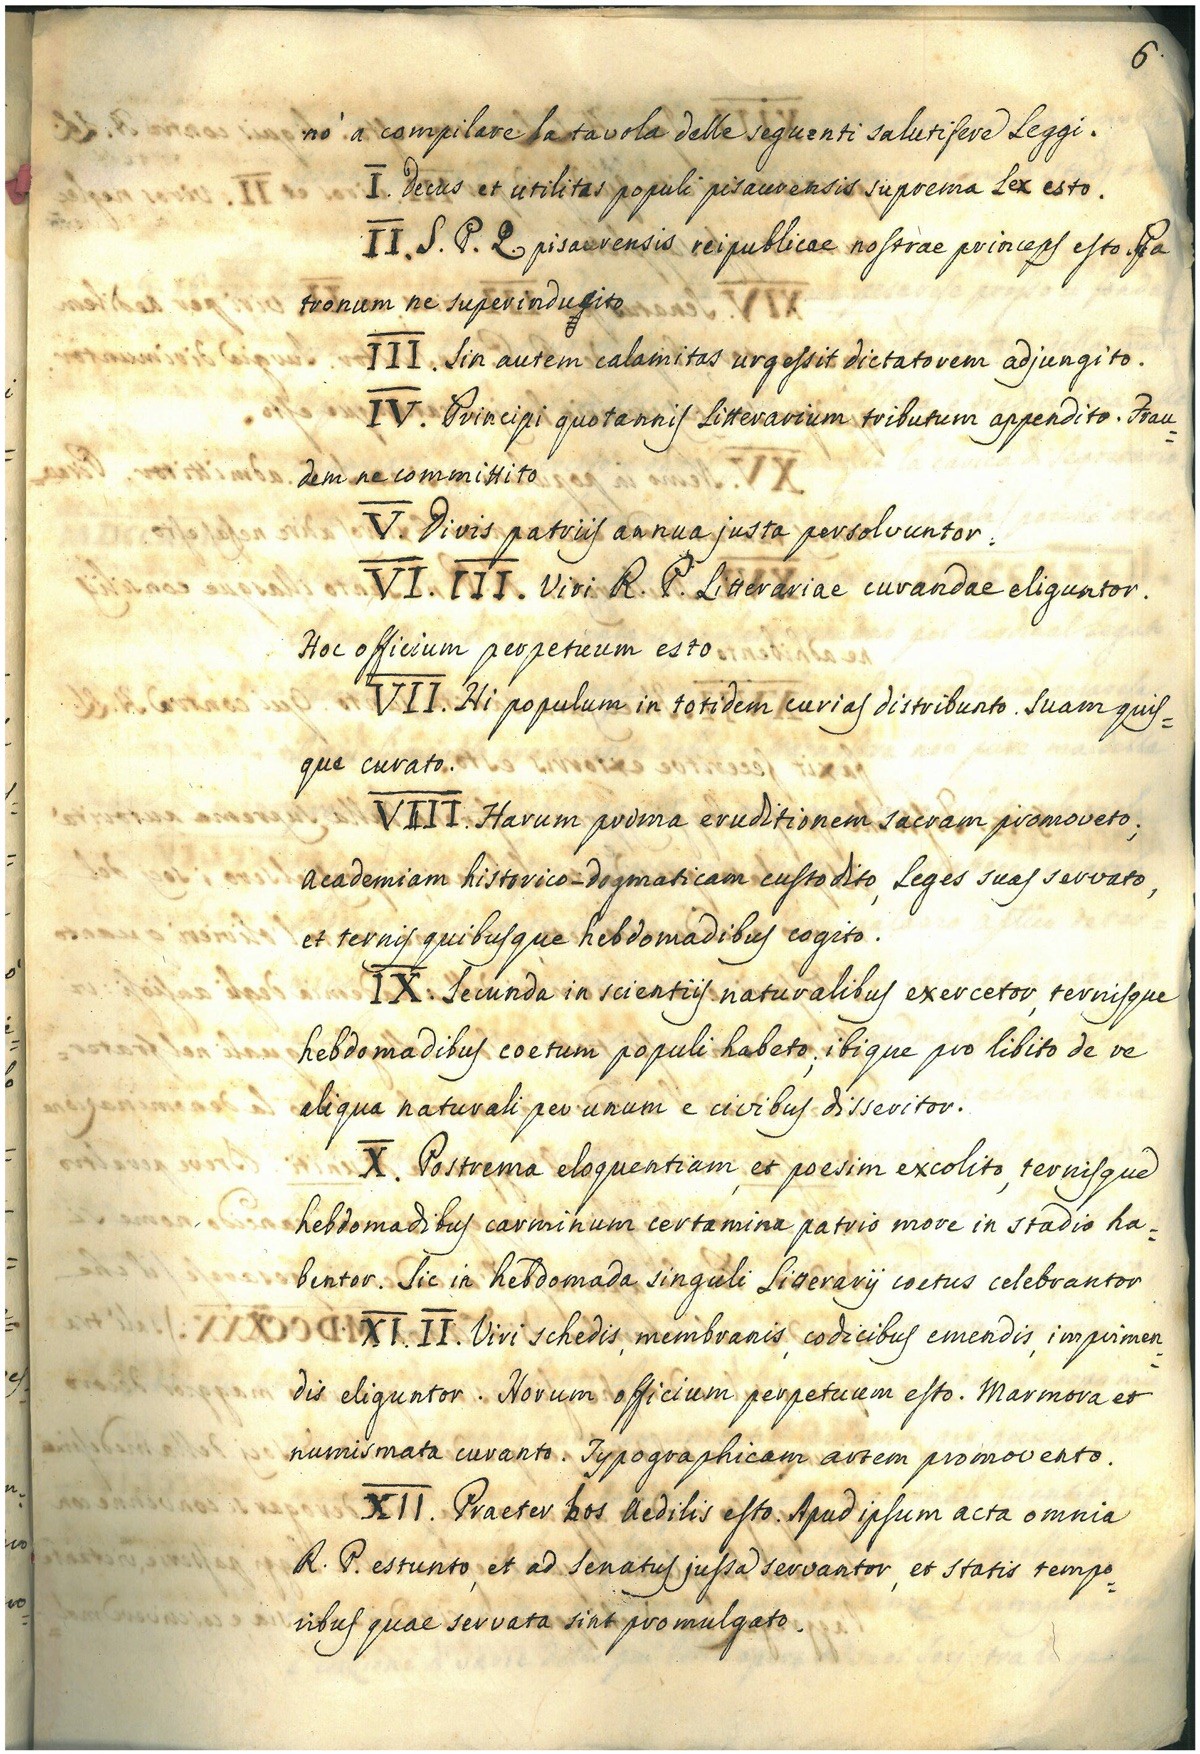 6.
no' a compilare la tavola delle seguenti salutifere Leggi.
I. Decus et utilitas populi pisaurensis suprema Lex esto.
II. S. P. Q pisaurensis reipublicae nostrae princeps esto. Pa
tronum ne superindugito
III. Sin autem calamitas urgessit dictatorem adjungito.
IV. Principi quotannis Litterarium tributum appendito. Frau=
dem ne committito
V. Divis patriis annua justa persolvuntor.
VI. III. Viri R. P. Litterariae curandae eliguntor.
Hoc officium perpetuum esto
VII. Hi populum in totidem curias distribunto. Suam quis=
que curato.
VIII. Harum prima eruditionem sacram promoveto;
Academiam historico-dogmaticam custodito, Leges suas servato,
et ternis quibusque hebdomadibus cogito.
IX. Secunda in scientiis naturalibus exercetor, ternisque
hebdomadibus coetum populi habeto; ibique pro libito de re
aliqua naturali per unum e civibus disseritor.
X. Postrema eloquentiam, et poesim excolito, ternisque
hebdomadibus carminum certamina patrio more in stadio ha=
bentor. Sic in hebdomada singuli Litterarij coetus celebrantor
XI. II. Viri schedis, membranis, codicibus emendis, imprimen=
dis eliguntor. Horum officium perpetuum esto. Marmora et
numismata curanto. Typographicam artem promovento.
XII. Praeter hos Aedilis esto. Apud ipsum acta omnia
R. P. estunto, et ad Senatus jussa servantor, et statis tempo=
ribus quae servata sint promulgato.